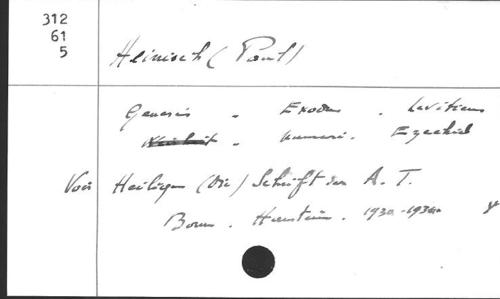 312
61
5
Heinisch (Paul)
Genesis . Exodus . Leviticus
Numeri . Ezechiel
Voir Heilige (Die) Schrift des A. T.
Bonn . Hanstein . 1930-1934